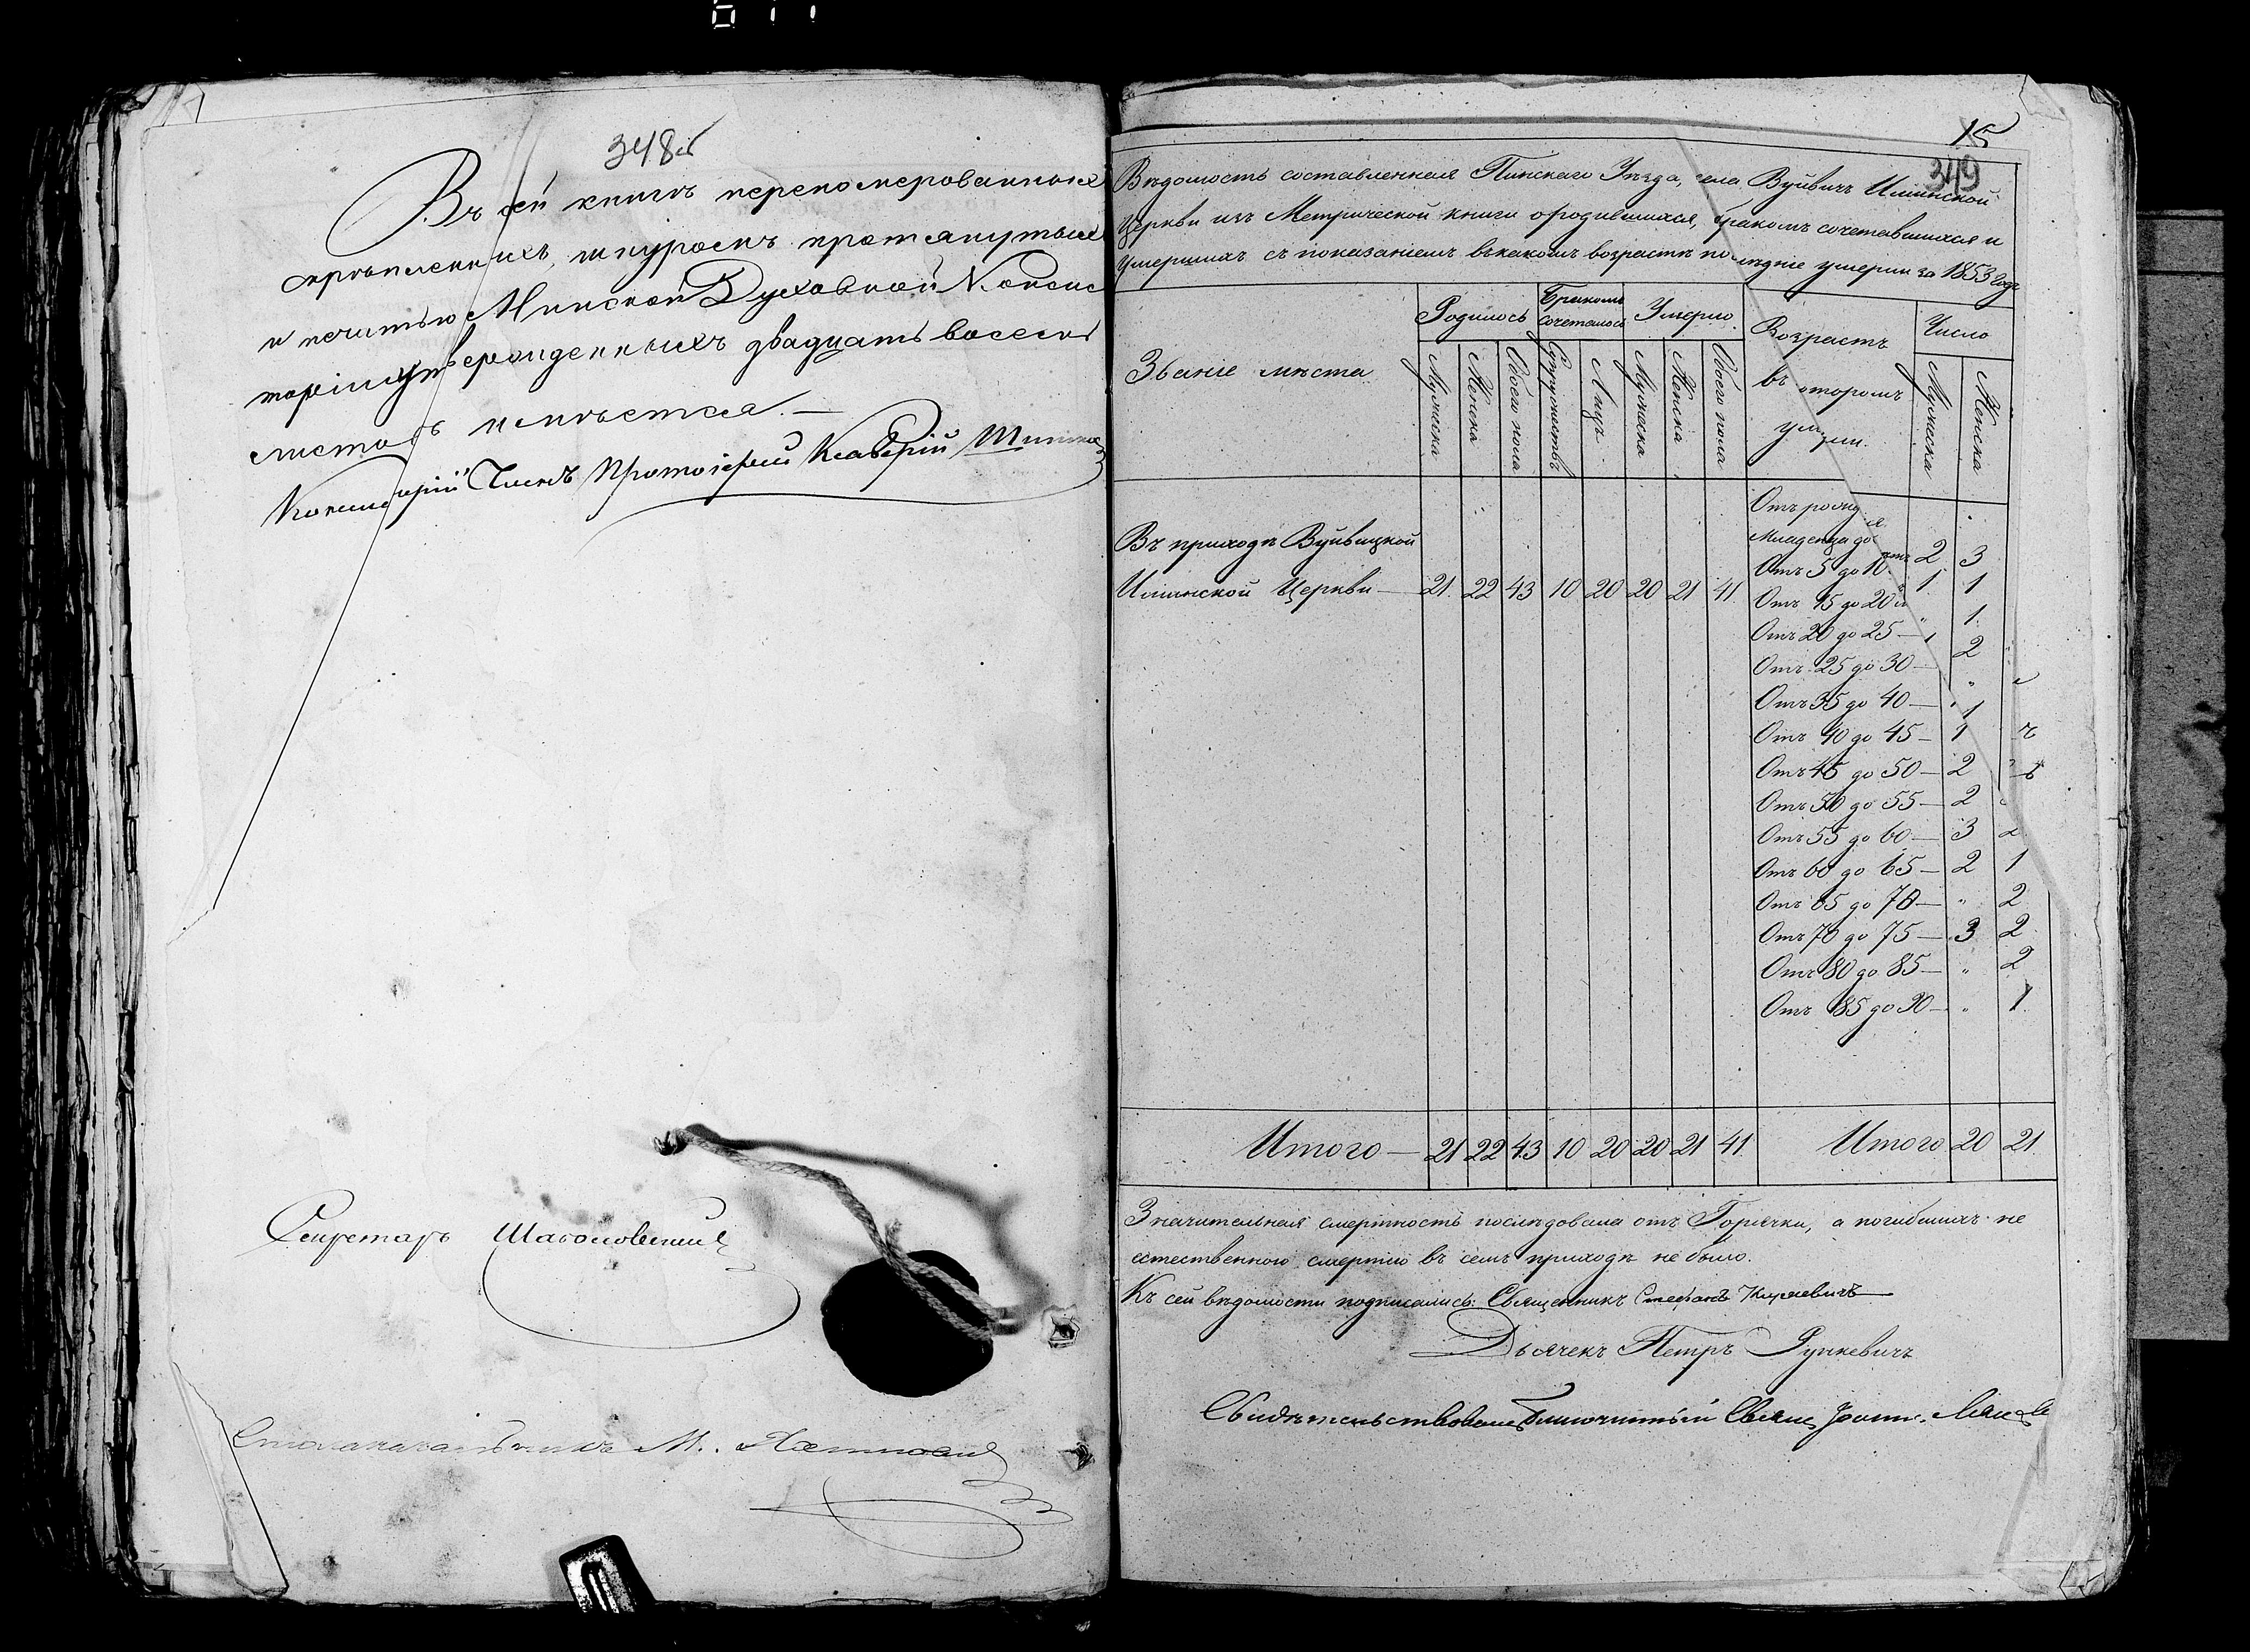 348об
Въ сей книгѣ перепомерованныхъ
скрѣпленныхъ, шнуромъ протянутыхъ
и печатью Минской Духовной Консис
торіи утвержденныхъ двадцать восемь
листовъ имѣется. —
Консисторіи Членъ Протоіерей Ксаверій
Секретарь
Столоначальникъ М.
15
349
Вѣдомость составленная Пинскаго Уѣзда, села Вуйвичъ Ильинской
Церкви изъ Метрической книги о родившихся, бракомъ сочетавшихся и
умершихъ съ показаніемъ въ какомъ возрастѣ послѣдніе умерли за 1853 годъ
Званіе мѣста
Родилось
Бракомъ сочеталось
Умерло
Возрастъ въ которомъ умерли.
Число
Мужеска
Женска
Обоего пола
Супружествъ
Лицъ
Мужеска
Женска
Обоего пола
Мужеска
Женска
Въ приходѣ Вуйвицкой
Ильинской Церкви — 21. 22 43 10 20 20 21 41.
Отъ рожд
Младенца до 2 3
Отъ 5 до 10 1 1
Отъ 15 до 20 " 1.
Отъ 20 до 25 — 1 2
Отъ 25 до 30 — "
Отъ 35 до 40 — " 1
Отъ 40 до 45 — 1
Отъ 45 до 50 — 2
Отъ 50 до 55 — 2
Отъ 55 до 60 — 3 2
Отъ 60 до 65 — 2 1
Отъ 65 до 70 — " 2
Отъ 70 до 75 — 3 2
Отъ 80 до 85 — " 2
Отъ 85 до 90 — " 1.
Итого — 21 22 43 10 20 20 21 41. Итого 20 21.
Значительная смертность послѣдовала отъ Горячки, а погибшихъ не
естественною смертію въ семъ приходѣ не было.
Къ сей вѣдомости подписались: Священникъ Стефанъ
Дьячекъ Петръ Рункевичъ
Свидѣтельствовалъ Благочинный Свящ